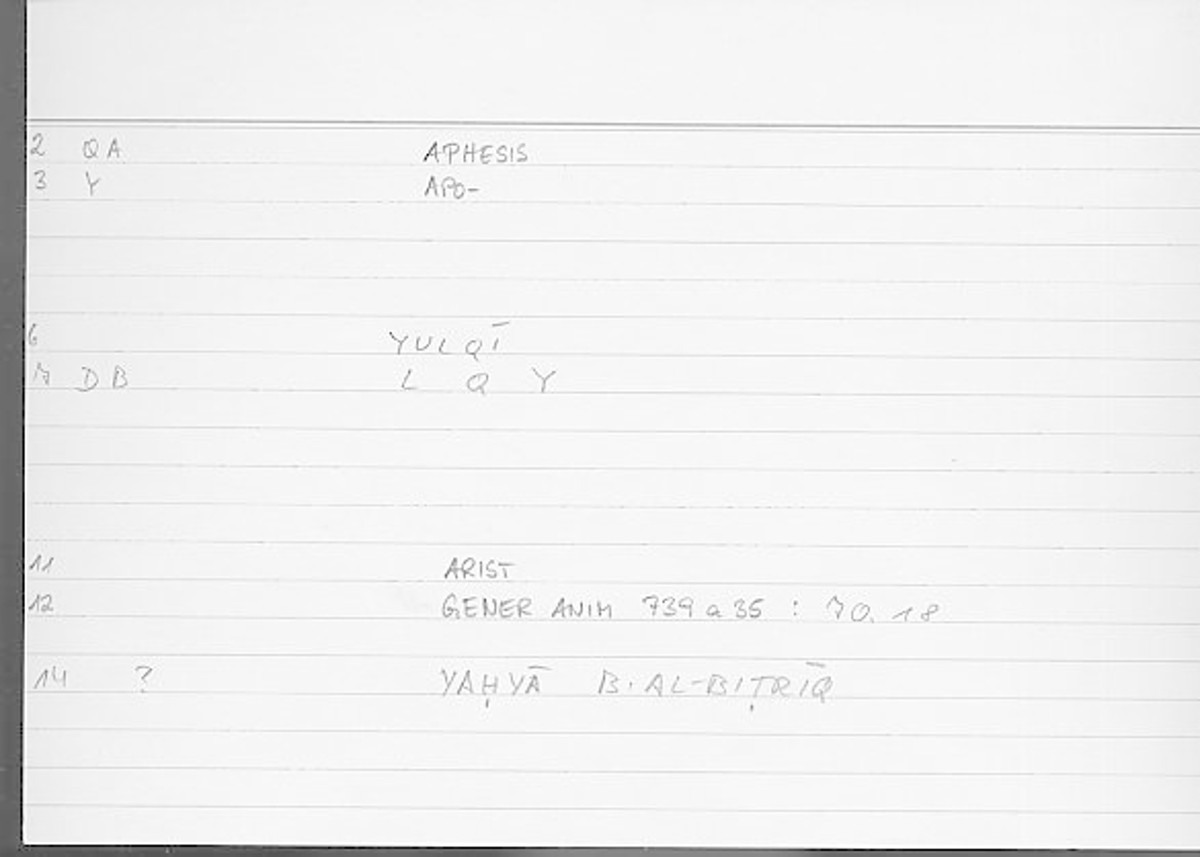 2 QA APHESIS
3 Y APO-
6 YULQĪ
7 DB L Q Y
11 ARIST
12 GENER ANIM 739 a 35 : 70. 18
14 ? YAḤYĀ B. AL-BIṬRĪQ